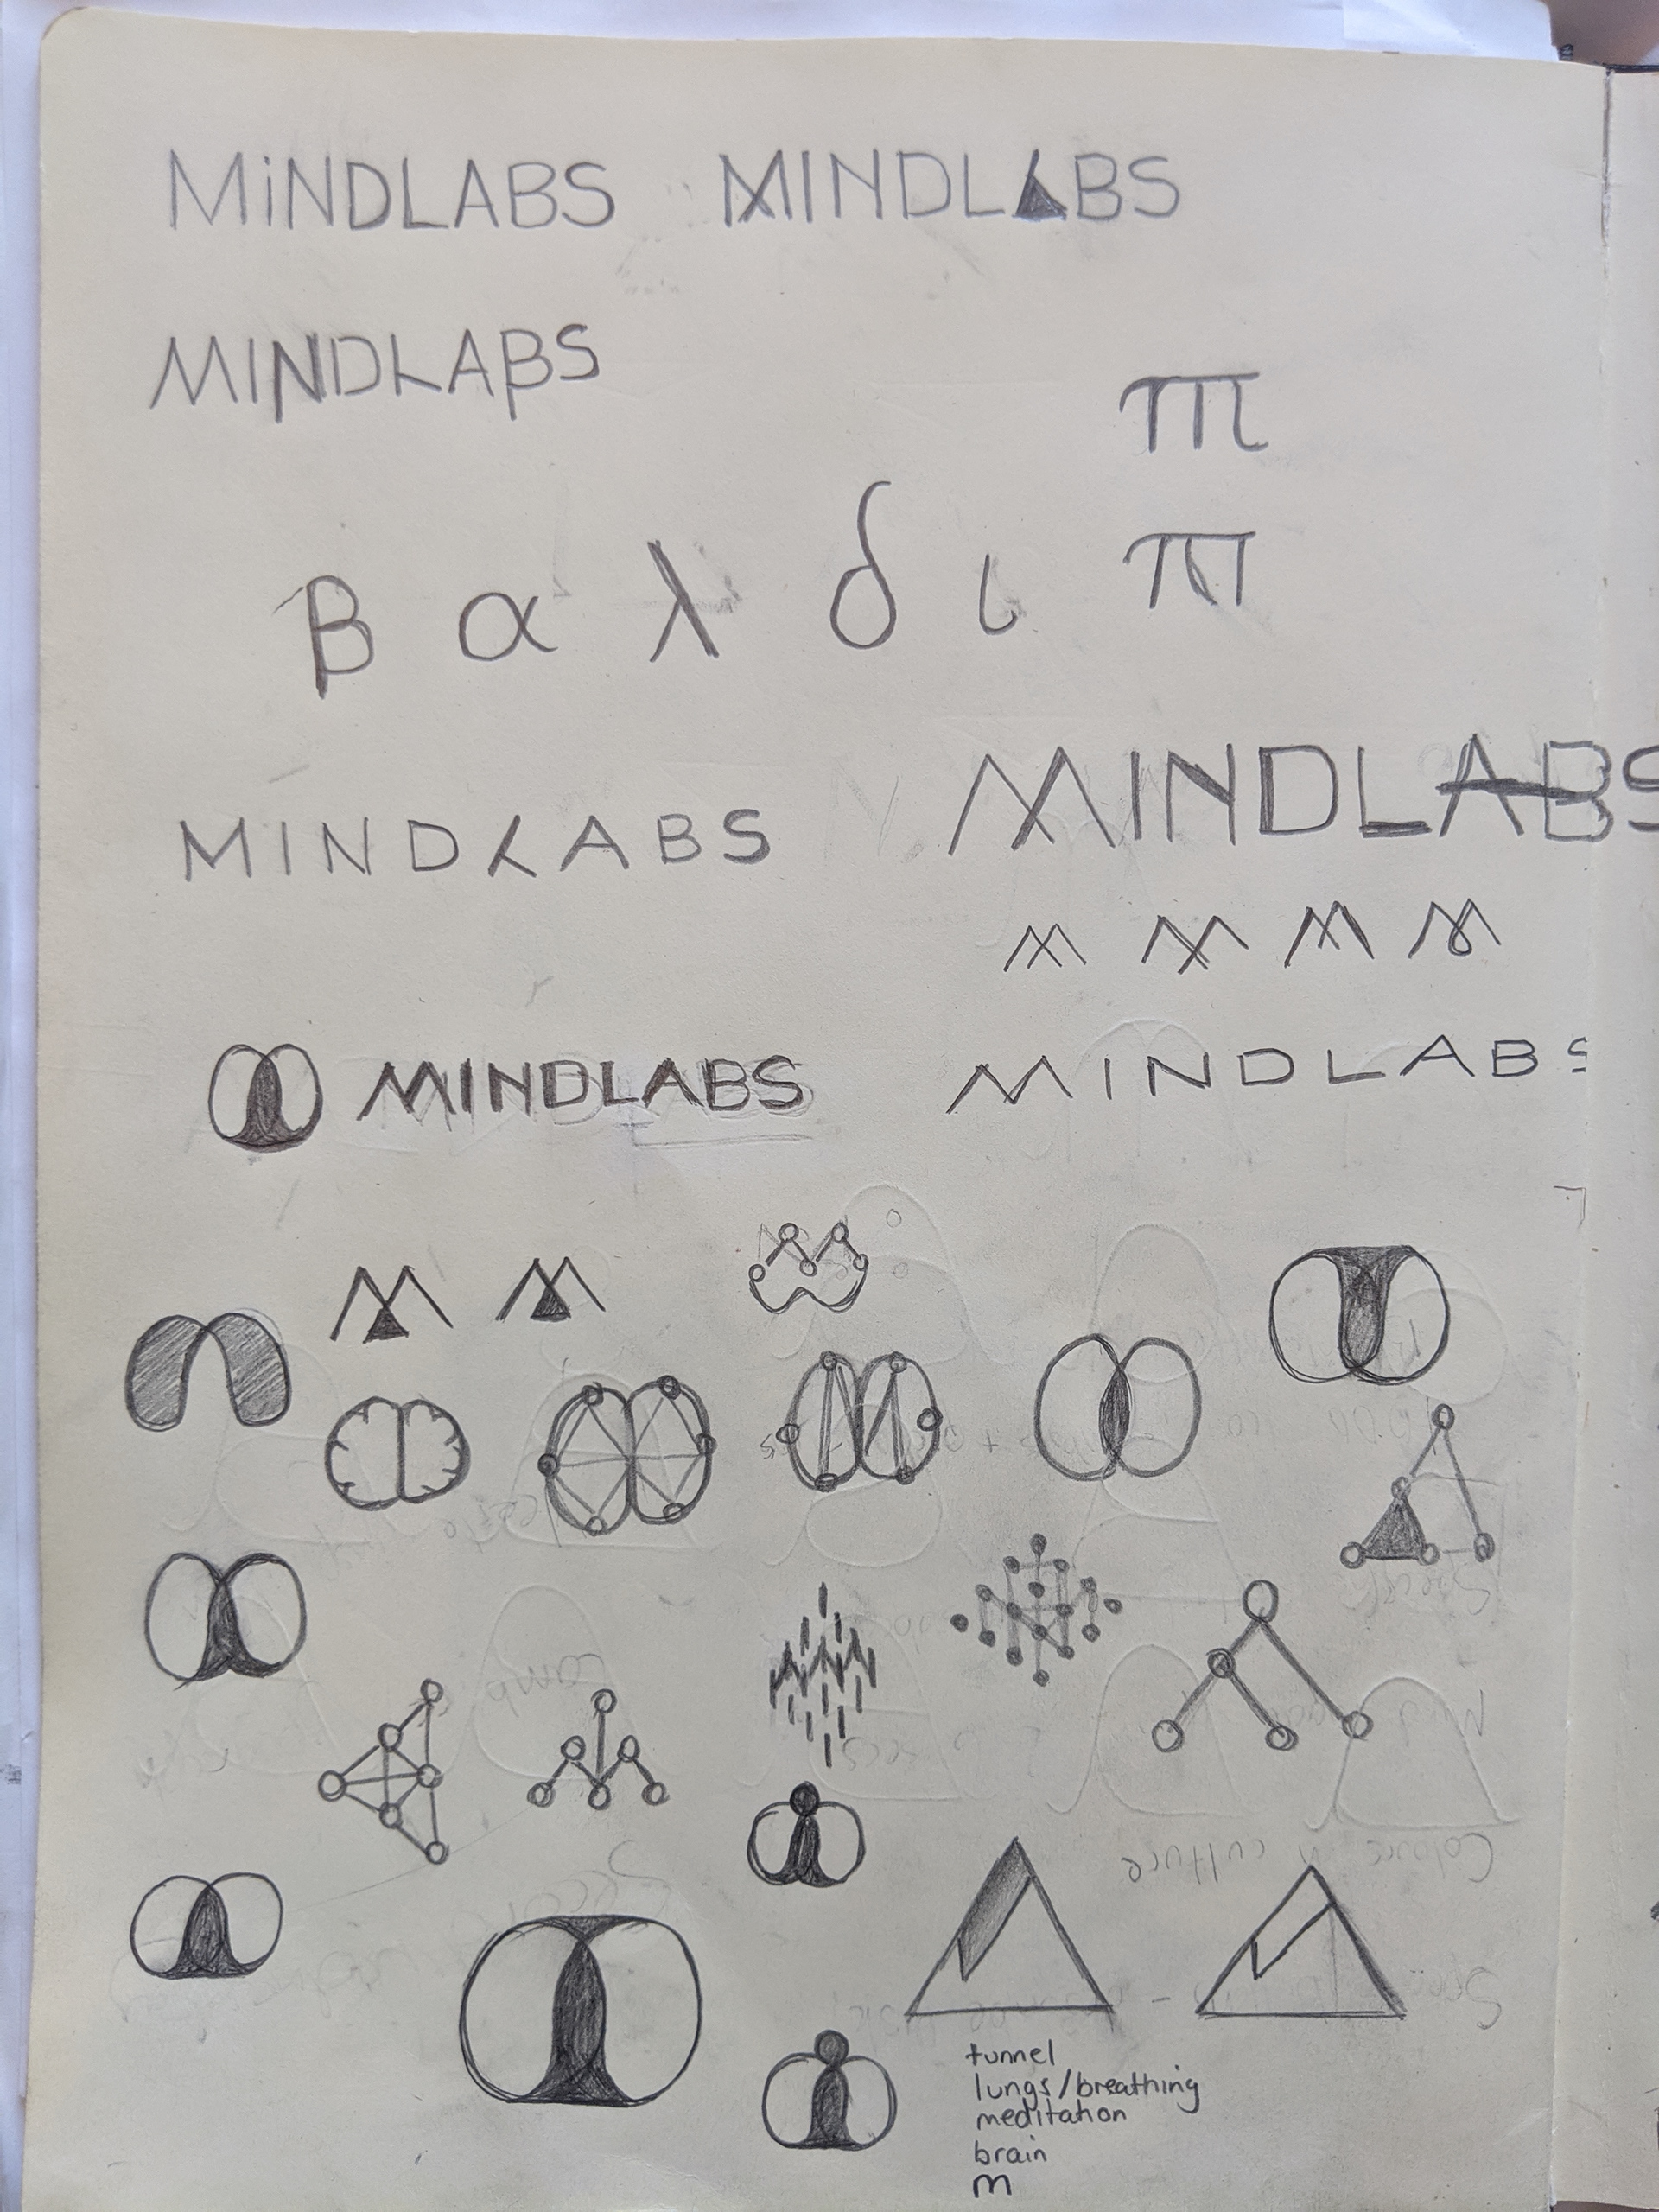 MiNDLABS MINDLABS
MINDLABS
β α λ δ ι π
π
MINDLABS MINDLABS
M M M M
MINDLABS MINDLABS
tunnel
lungs/breathing
meditation
brain
m
Colours in culture